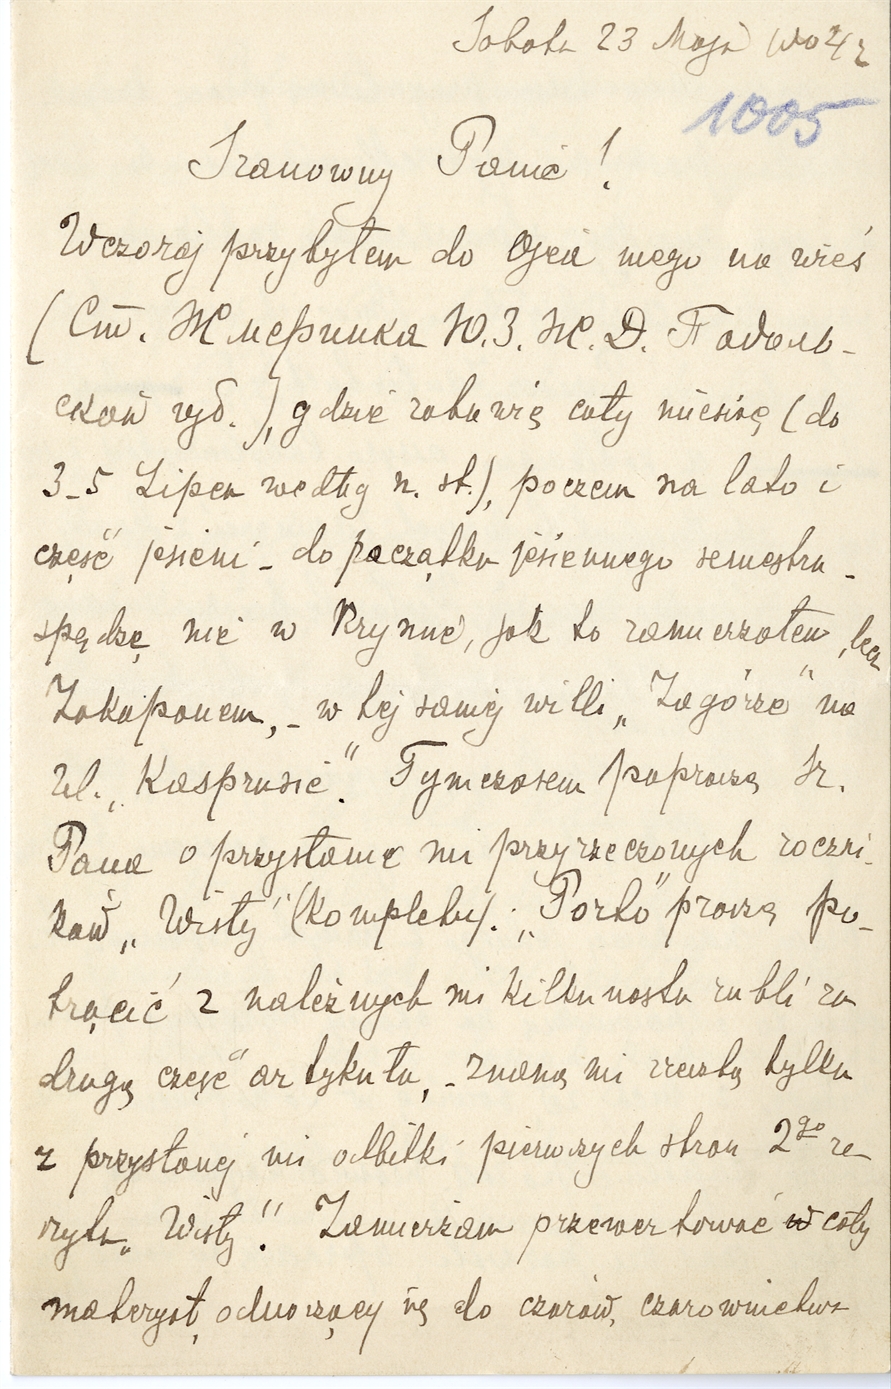 Sobota 23 Maja 1904 r
1005
Szanowny Panie!
Wczoraj przybyłem do Ojca mego na wieś
(Ст. Жмеринка Ю.З.Ж.Д. Подоль-
ской губ.), gdzie zabawię cały miesiąc (do
3-5 Lipca według n. st.), poczem na lato i
część jesieni - do początku jesiennego semestru -
spędzę nie w Krynicę, jak to zamierzałem, lecz
Zakopanem, - w tej samej willi „Zagórze" na
Ul. „Kasprusie". Tymczasem poproszę Sz.
Pana o przysłanie mi przyrzeczonych roczni-
ków „Wisły" (Komplety).; „Porto" proszę po-
trącić z należnych mi kilkunastu rubli za
drugą część artykułu, - znaną mi zresztą tylko
z przysłanej mi odbitki pierwszych stron 2go ze-
szytu „Wisły". Zamierzam przewertować w cały
materyał, odnoszący się do czarów, czarownictwa